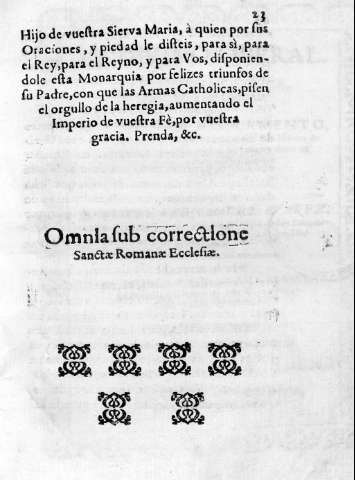 23
Hijo de vueſtra Sierva Maria, à quien por sus
Oraciones, y piedad le diſteis, para sì, para
el Rey, para el Reyno, y para Vos, diſponien-
dole eſta Monarquia por felizes triunfos de
ſu Padre, con que las Armas Catholicas, piſen
el orgullo de la heregia, aumentando el
Imperio de vueſtra Fè, por vueſtra
gracia. Prenda, &c.
Omnia ſub correctione
Sanctæ Romanæ Eccleſiæ.